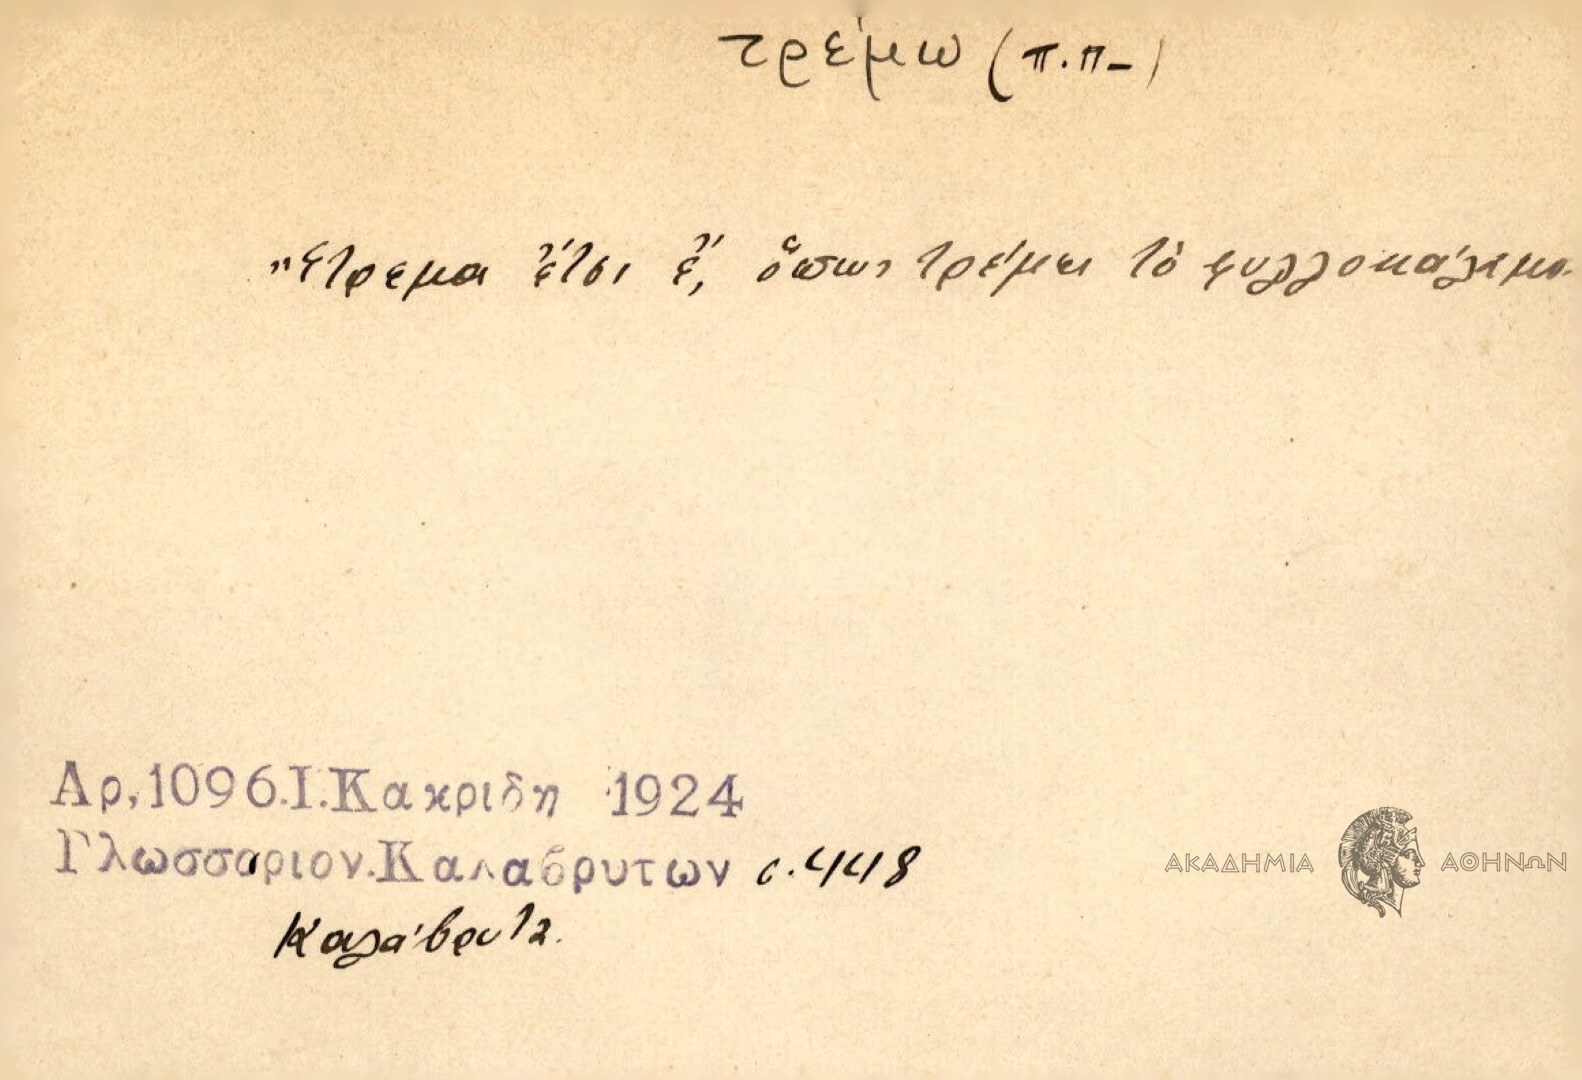 τρέμω (π.π-)
"Ετρεμα ἔτσι ἔ, ὅπως τρέμει τὸ φυλλοκάλαμο.
Αρ,1096.Ι.Κακριδη 1924
Γλωσσαριον.Καλαβρυτων σ.448
Καλάβρυτα.
ΑΚΑΔΗΜΙΑ ΑΘΗΝΩΝ